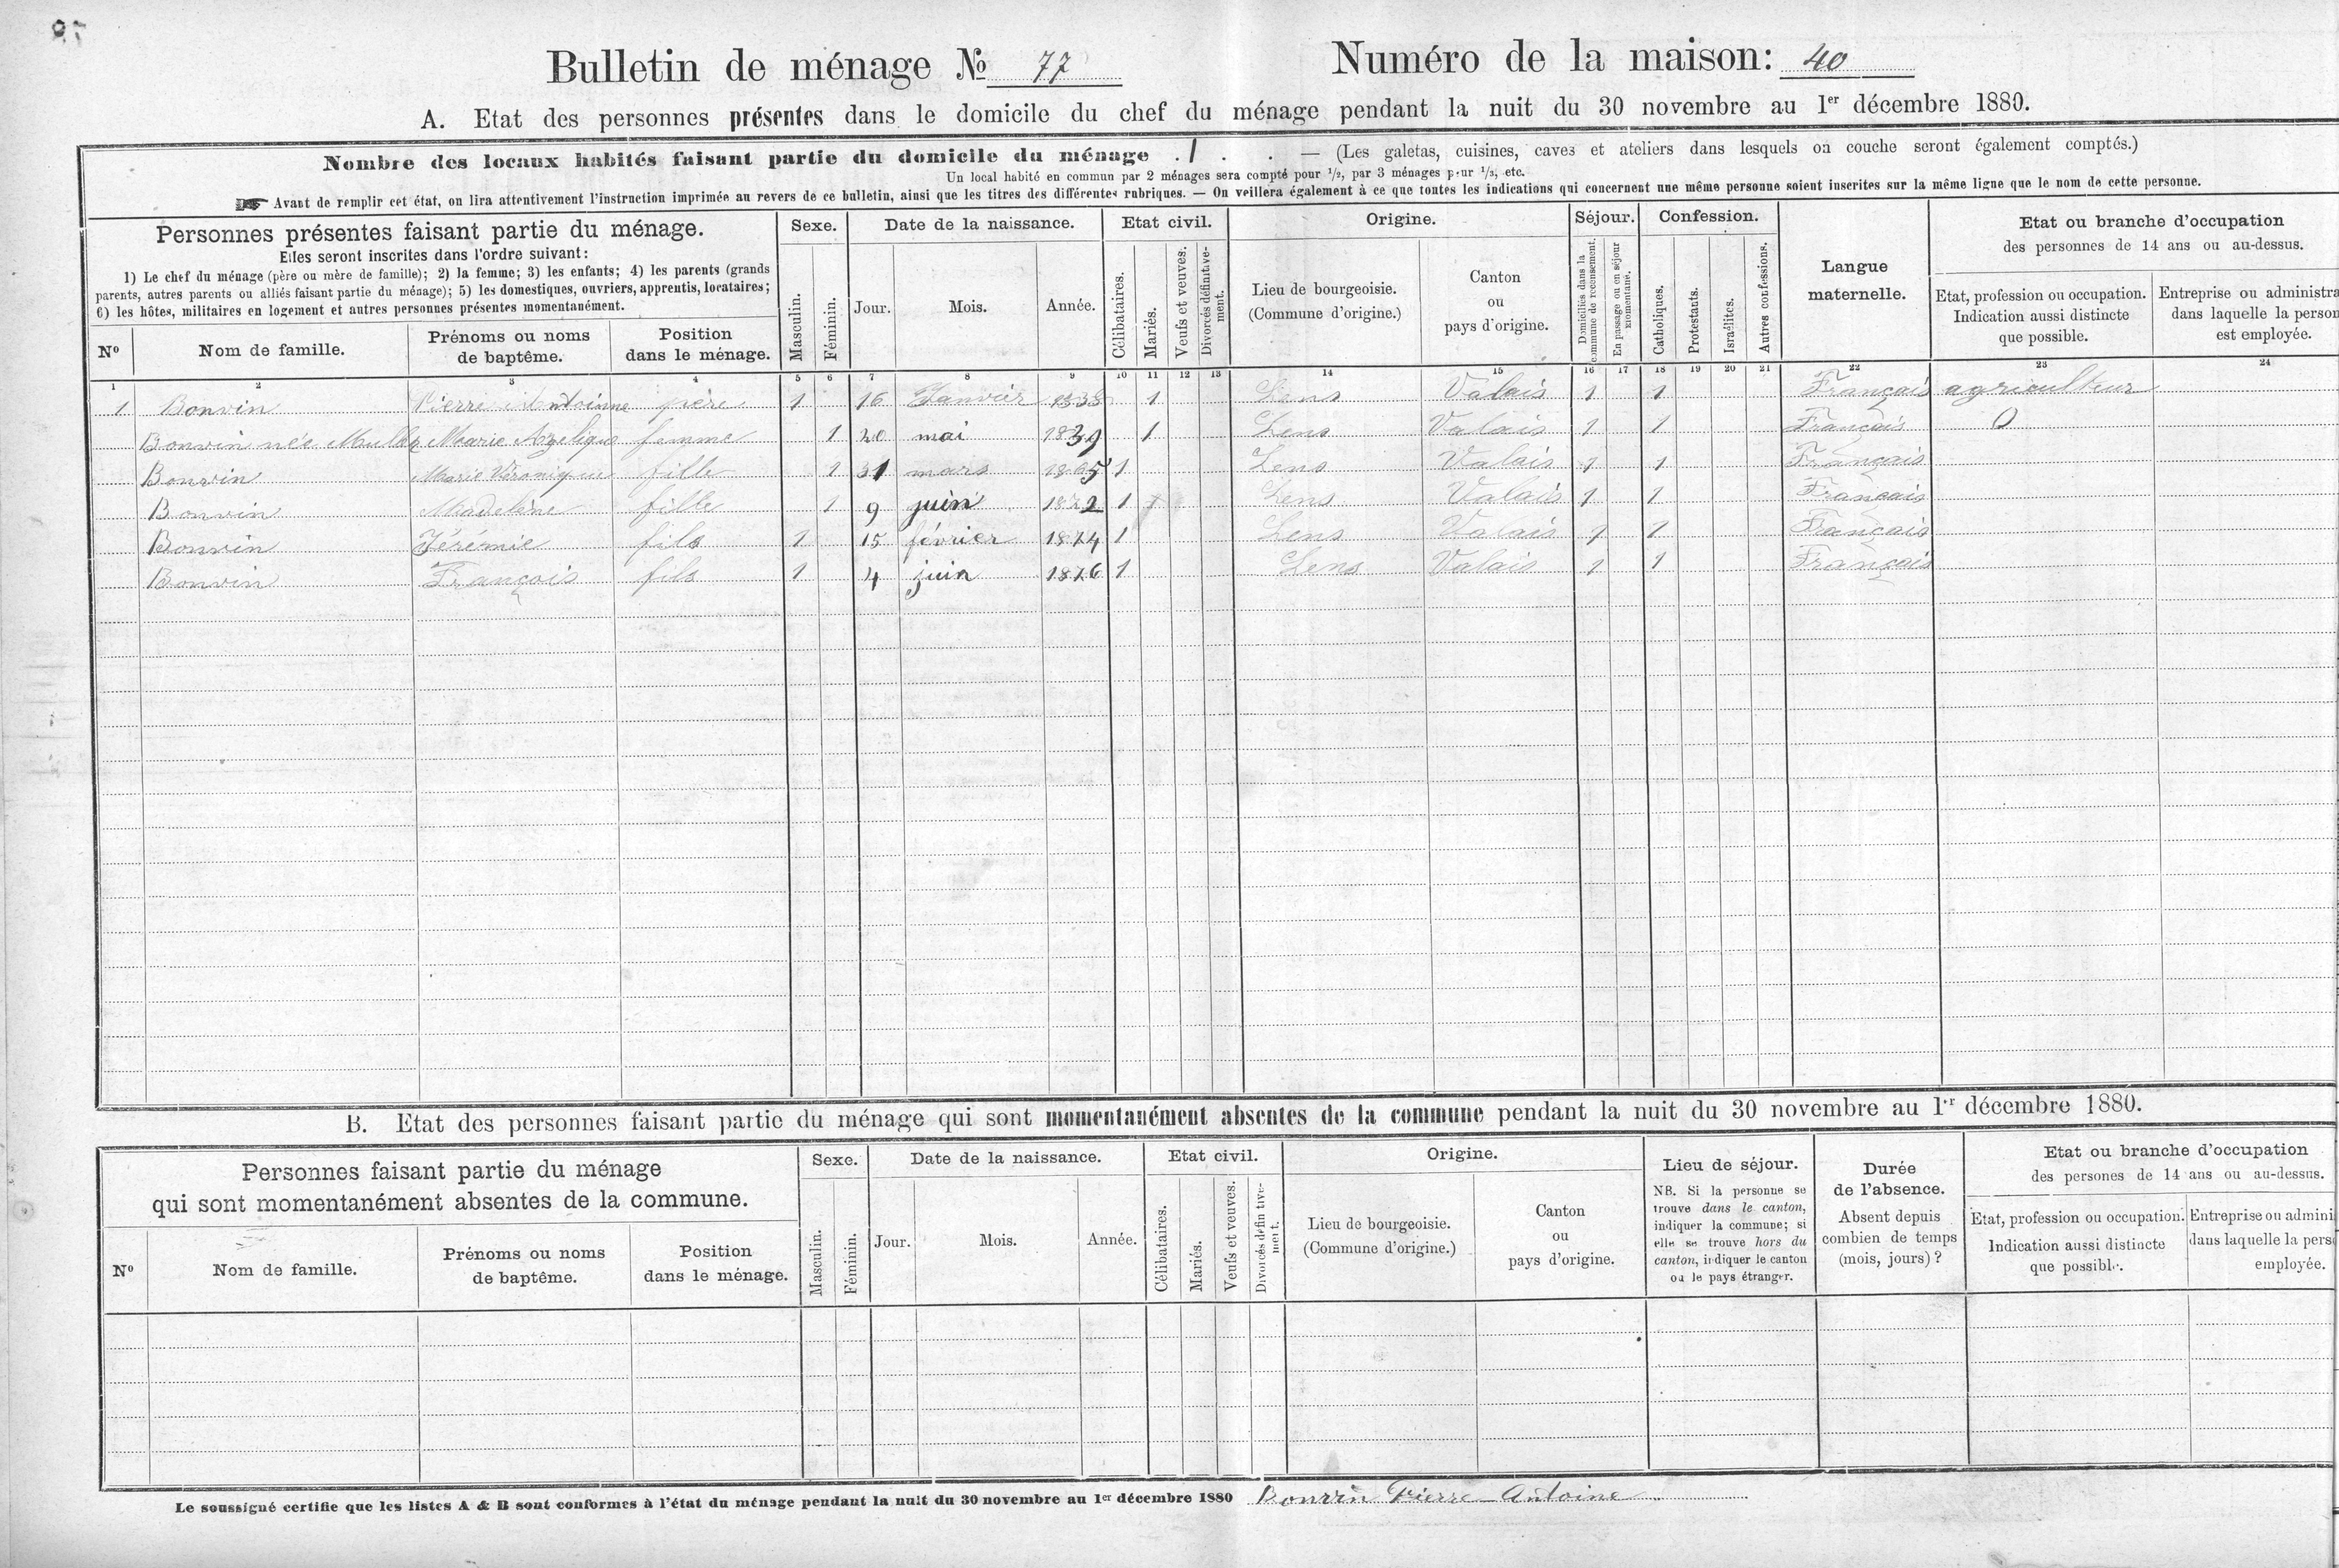 Bulletin de ménage No 77
Numéro de la maison: 40
A. Etat des personnes présentes dans le domicile du chef du ménage pendant la nuit du 30 novembre au 1er décembre 1880.
Nombre des locaux habités faisant partie du domicile du ménage . 1 . . — (Les galetas, cuisines, caves et ateliers dans lesquels on couche seront également comptés.)
Un local habité en commun par 2 ménages sera compté pour 1/2, par 3 ménages pour 1/3, etc.
Avant de remplir cet état, on lira attentivement l'instruction imprimée au revers de ce bulletin, ainsi que les titres des différentes rubriques. — On veillera également à ce que toutes les indications qui concernent une même personne soient inscrites sur la même ligne que le nom de cette personne.
Personnes présentes faisant partie du ménage.
Elles seront inscrites dans l'ordre suivant:
1) Le chef du ménage (père ou mère de famille); 2) la femme; 3) les enfants; 4) les parents (grands
parents, autres parents ou alliés faisant partie du ménage); 5) les domestiques, ouvriers, apprentis, locataires;
6) les hôtes, militaires en logement et autres personnes présentes momentanément.
No
Nom de famille.
Prénoms ou noms
de baptême.
Position
dans le ménage.
Sexe.
Masculin.
Féminin.
Date de la naissance.
Jour.
Mois.
Année.
Etat civil.
Célibataires.
Mariés.
Veufs et veuves.
Divorcés définitive-
ment.
Origine.
Lieu de bourgeoisie.
(Commune d'origine.)
Canton
ou
pays d'origine.
Séjour.
Domiciliés dans la
commune de recensement.
En passage ou en séjour
momentané.
Confession.
Catholiques.
Protestants.
Israélites.
Autres confessions.
Langue
maternelle.
Etat ou branche d'occupation
des personnes de 14 ans ou au-dessus.
Etat, profession ou occupation.
Indication aussi distincte
que possible.
Entreprise ou administra
dans laquelle la person
est employée.
1 2 3 4 5 6 7 8 9 10 11 12 13 14 15 16 17 18 19 20 21 22 23 24
1 Bonvin Pierre Antoinne père 1 16 Janvier 1838 1 Lens Valais 1 1 Français agriculteur
Bonvin née Marie Angelique femme 1 20 mai 1839 1 Lens Valais 1 1 Français O
Bonvin Marie Véronique fille 1 31 mars 1865 1 Lens Valais 1 1 Français
Bonvin Madeleine fille 1 9 juin 1872 1 Lens Valais 1 1 Français
Bonvin Jérémie fils 1 15 février 1874 1 Lens Valais 1 1 Français
Bonvin François fils 1 4 juin 1876 1 Lens Valais 1 1 Français
B. Etat des personnes faisant partie du ménage qui sont momentanément absentes de la commune pendant la nuit du 30 novembre au 1er décembre 1880.
Personnes faisant partie du ménage
qui sont momentanément absentes de la commune.
No
Nom de famille.
Prénoms ou noms
de baptême.
Position
dans le ménage.
Sexe.
Masculin.
Féminin.
Date de la naissance.
Jour.
Mois.
Année.
Etat civil.
Célibataires.
Mariés.
Veufs et veuves.
Divorcés définitive-
ment.
Origine.
Lieu de bourgeoisie.
(Commune d'origine.)
Canton
ou
pays d'origine.
Lieu de séjour.
NB. Si la personne se
trouve dans le canton,
indiquer la commune; si
elle se trouve hors du
canton, indiquer le canton
ou le pays étranger.
Durée
de l'absence.
Absent depuis
combien de temps
(mois, jours)?
Etat ou branche d'occupation
des persones de 14 ans ou au-dessus.
Etat, profession ou occupation.
Indication aussi distincte
que possible.
Entreprise ou admini
dans laquelle la pers
employée.
Le soussigné certifie que les listes A & B sont conformes à l'état du ménage pendant la nuit du 30 novembre au 1er décembre 1880 Bonvin Pierre-Antoine